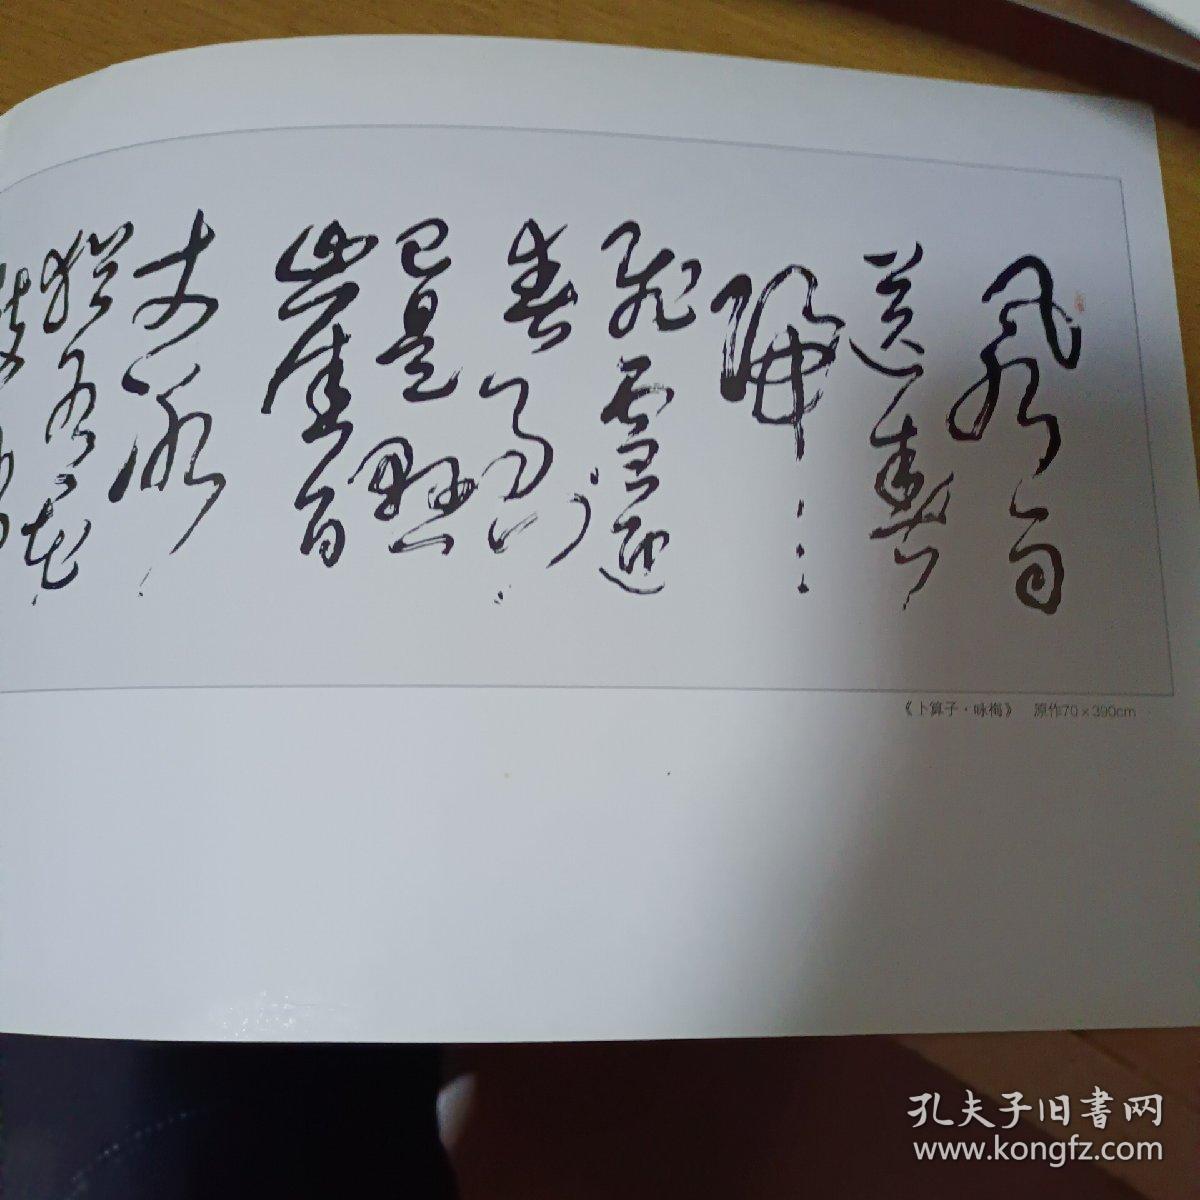 风雨
送春
归
飞雪迎
春到
已是悬
崖百
丈冰
犹有花
《卜算子·咏梅》 原作70×390cm
孔夫子旧书网
www.kongfz.com